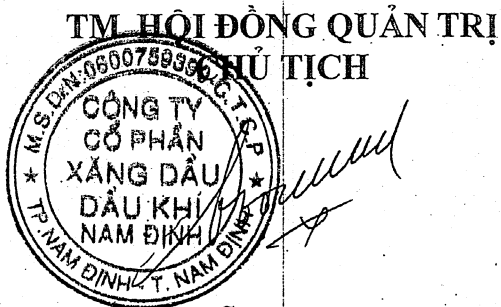 TM. HỘI ĐỒNG QUẢN TRỊ
CHỦ TỊCH
M.S.D.N:0600759390-C.T.C.P
CÔNG TY
CỔ PHẦN
XĂNG DẦU
DẦU KHÍ
NAM ĐỊNH
TP.NAM ĐỊNH - T. NAM ĐỊNH